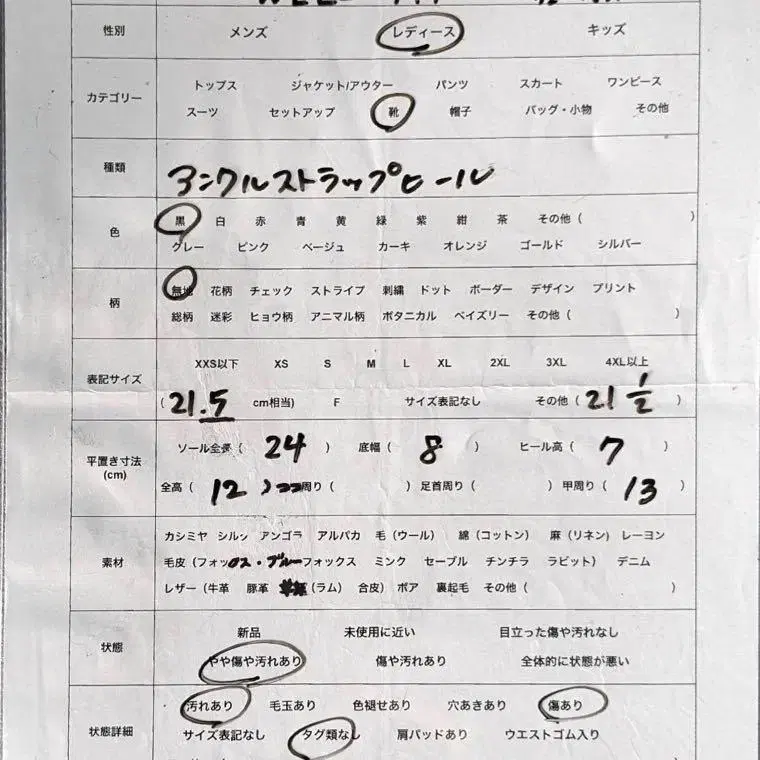 性別 メンズ レディース キッズ
トップス ジャケット/アウター パンツ スカート ワンピース
カテゴリー
スーツ セットアップ 靴 帽子 バッグ・小物 その他
種類 アンクルストラップヒール
黒 白 赤 青 黄 緑 紫 紺 茶 その他 ( )
色
グレー ピンク ベージュ カーキ オレンジ ゴールド シルバー
無地 花柄 チェック ストライプ 刺繍 ドット ボーダー デザイン プリント
柄
総柄 迷彩 ヒョウ柄 アニマル柄 ボタニカル ペイズリー その他 ( )
XXS以下 XS S M L XL 2XL 3XL 4XL以上
表記サイズ
( 21.5 cm相当) F サイズ表記なし その他 ( 21 1/2 )
ソール全長 ( 24 ) 底幅 ( 8 ) ヒール高 ( 7 )
平置き寸法
(cm)
全高 ( 12 ) 周り ( ) 足首周り ( ) 甲周り ( 13 )
カシミヤ シルク アンゴラ アルパカ 毛 (ウール) 綿 (コットン) 麻 (リネン) レーヨン
素材
毛皮 (フォックス・ブルーフォックス ミンク セーブル チンチラ ラビット) デニム
レザー (牛革 豚革 (ラム) 合皮) ボア 裏起毛 その他 ( )
新品 未使用に近い 目立った傷や汚れなし
状態
やや傷や汚れあり 傷や汚れあり 全体的に状態が悪い
汚れあり 毛玉あり 色褪せあり 穴あきあり 傷あり
状態詳細
サイズ表記なし タグ類なし 肩パッドあり ウエストゴム入り